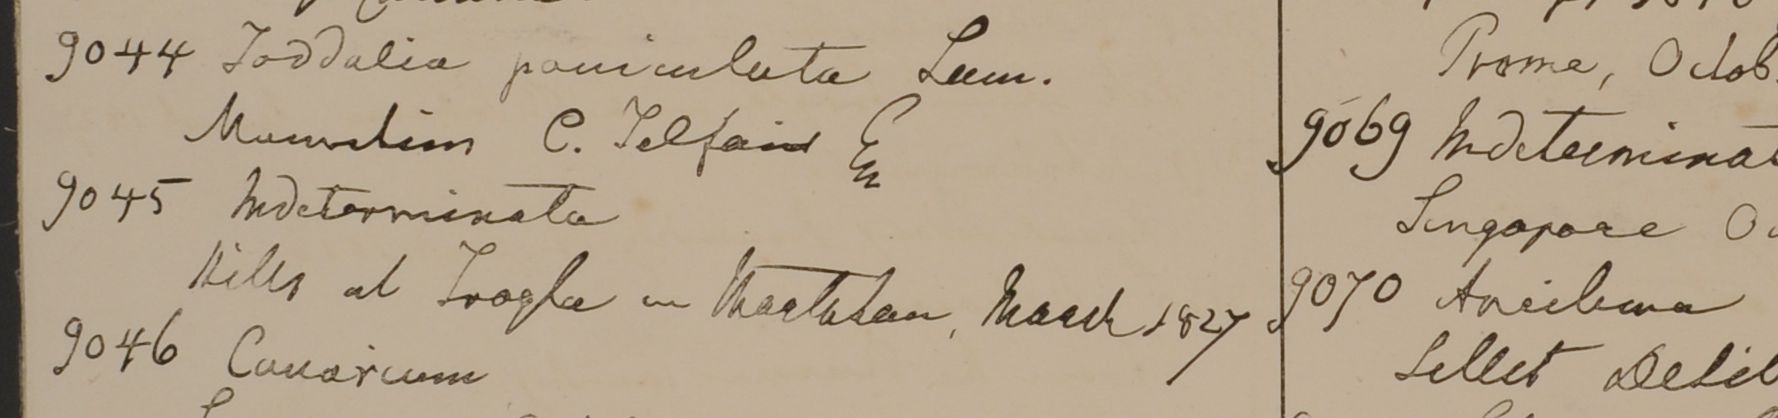 9044 Toddalia paniculata Lam.
Mauritius C. Telfair
9045 Indeterminata
Hills at Trogla in Martaban, March 1827
9046 Canarium
Prome, Octob
9069 Indeterminat
Singapore Oc
9070
Sillet